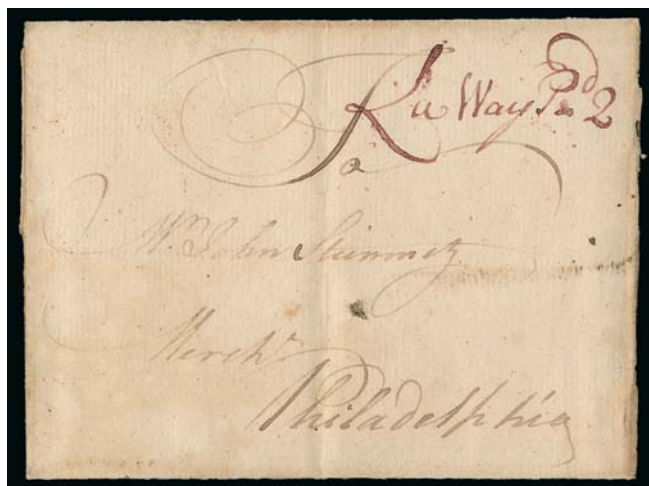 Ra Way Pd 2
To
Mr John Steinmetz
Mercht
Philadelphia